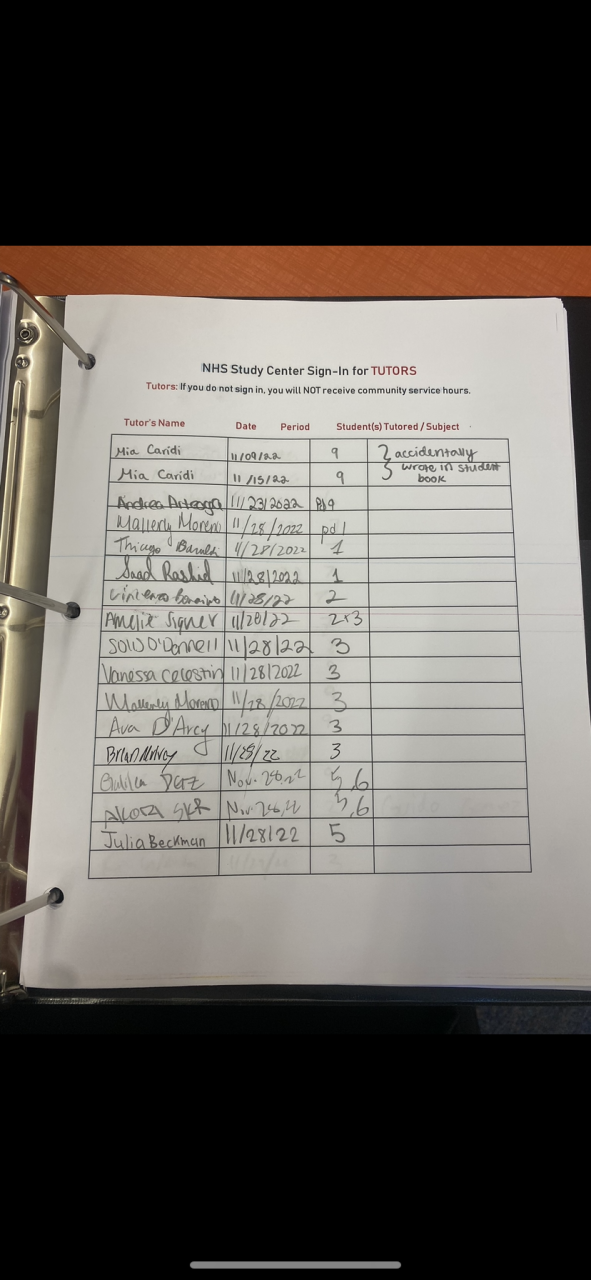 NHS Study Center Sign-In for TUTORS
Tutors: If you do not sign in, you will NOT receive community service hours.
Tutor's Name Date Period Student(s) Tutored / Subject
Mia Caridi 11/09/22 9 accidentally
Mia Caridi 11/15/22 9 wrote in student book
Andrea Arteaga 11/23/2022 Pd 9
Mallerly Moreno 11/28/2022 pd 1
Thiago 11/28/2022 1
Saad Rashid 11/28/2022 1
Vincenzo 11/28/22 2
Amelie Signer 11/28/22 2+3
O'Donnell 11/28/22 3
Vanessa Celestin 11/28/2022 3
Mallerly Moreno 11/28/2022 3
Ava D'Arcy 11/28/2022 3
Brian 11/28/22 3
Nov. 28 5,6
5,6
Julia Beckman 11/28/22 5